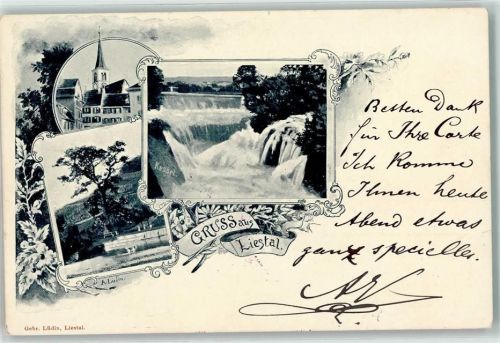 Kessel.
Allein.
GRUSS aus
Liestal.
Besten Dank
für Ihre Carte
Ich komme
Ihnen heute
Abend etwas
ganz specielles.
Gebr. Lüdin, Liestal.